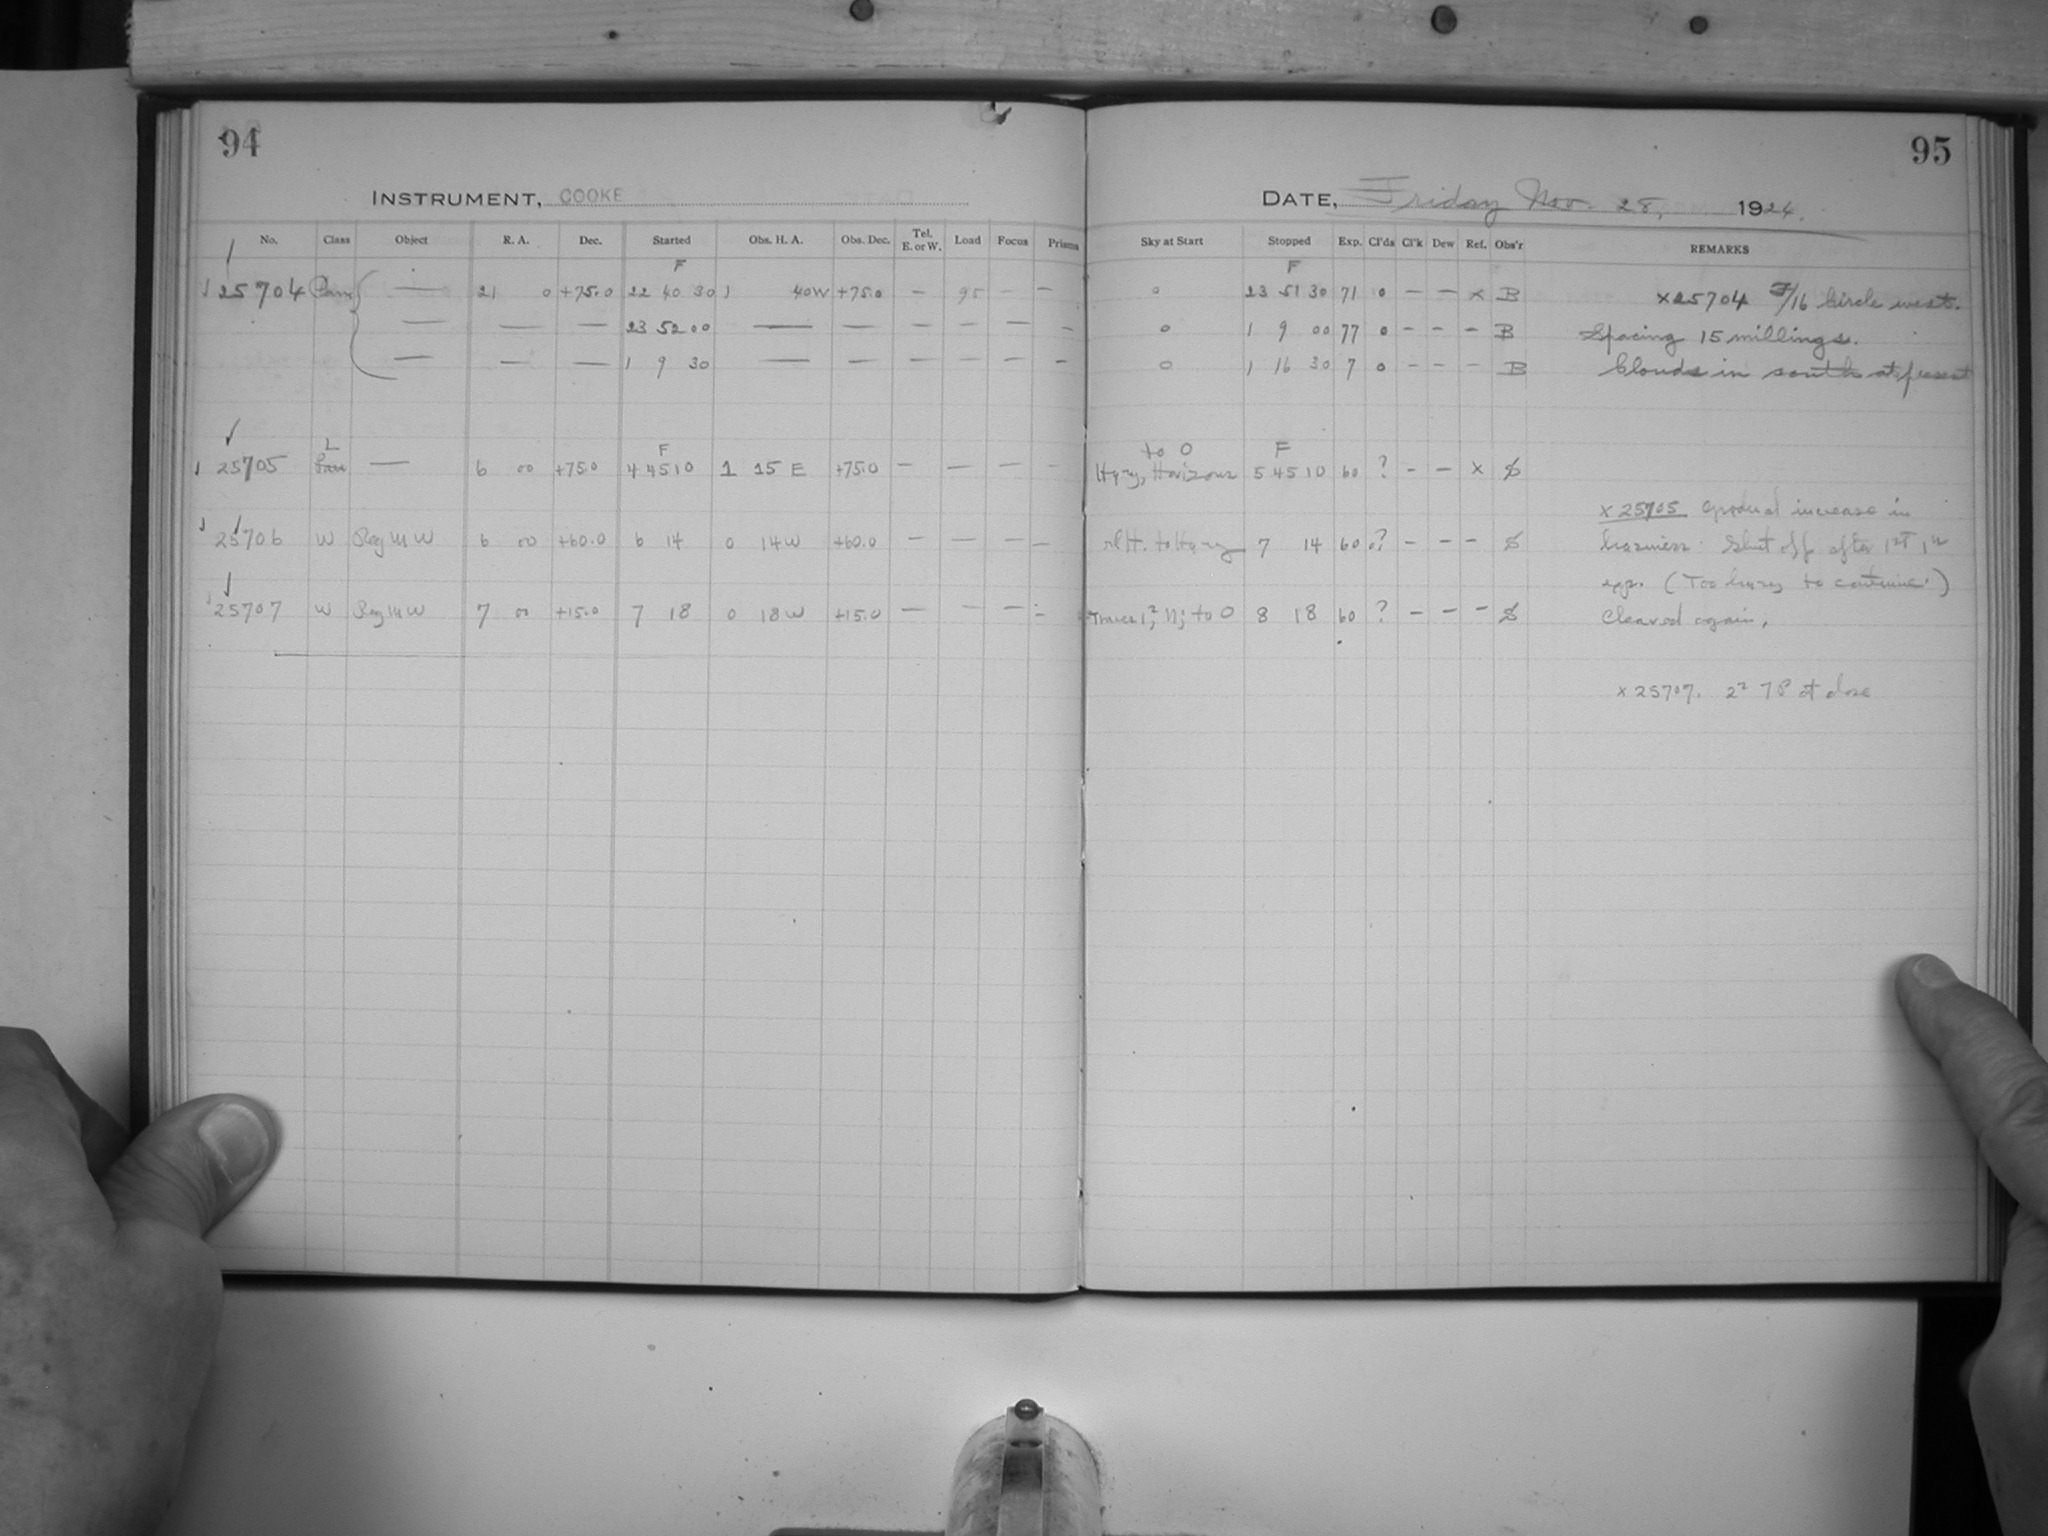 94
INSTRUMENT, COOKE
No. Class Object R. A. Dec. Started Obs. H. A. Obs. Dec. Tel. E. or W. Load Focus Prisms
F
25704 21 0 +75.0 22 40 30 1 40W +75.0 — 95 — —
— — — 23 52 00 — — — — — — —
— — — 1 9 30 — — — — — — —
L
25705 — 6 00 +75.0 4 45 10 1 15 E +75.0 — — — —
25706 W Reg M W 6 00 +60.0 6 14 0 14W +60.0 — — — —
25707 W Reg M W 7 00 +15.0 7 18 0 18W +15.0 — — — —
95
DATE, Friday Nov. 28, 1924.
Sky at Start Stopped Exp. Cl'ds Cl'k Dew Ref. Obs'r REMARKS
F
0 23 51 30 71 0 — — x B x25704 /16 Circle west.
0 1 9 00 77 0 — — — B Spacing 15 millings.
0 1 16 30 7 0 — — — B Clouds in south at present
to 0 F
Hazy, Horizons 5 45 10 60 ? — — x
x 25705 Gradual increase in
to Hazy 7 14 60 0? — — — haziness. Shut off after 1st 1h
exp. (Too hazy to continue.)
Traces 1², N; to 0 8 18 60 ? — — — Cleared again.
x 25707. 2² at close